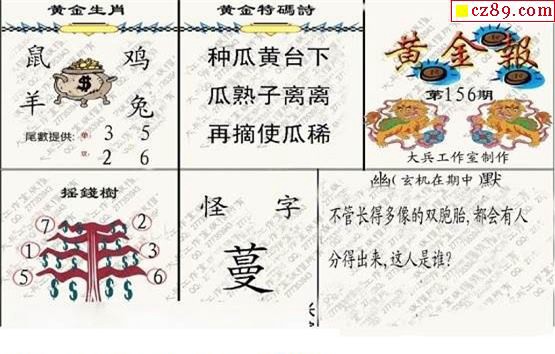 cz89.com
黄金生肖
鼠 鸡
$
羊 兔
尾數提供: 单 3 5
双 2 6
黄金特碼詩
种瓜黄台下
瓜熟子离离
再摘使瓜稀
黄金報
第156期
大兵工作室制作
摇錢樹
7 2
1 3
5 6
怪 字
蔓
幽(玄机在期中 默
不管长得多像的双胞胎,都会有人
分得出来,这人是谁?